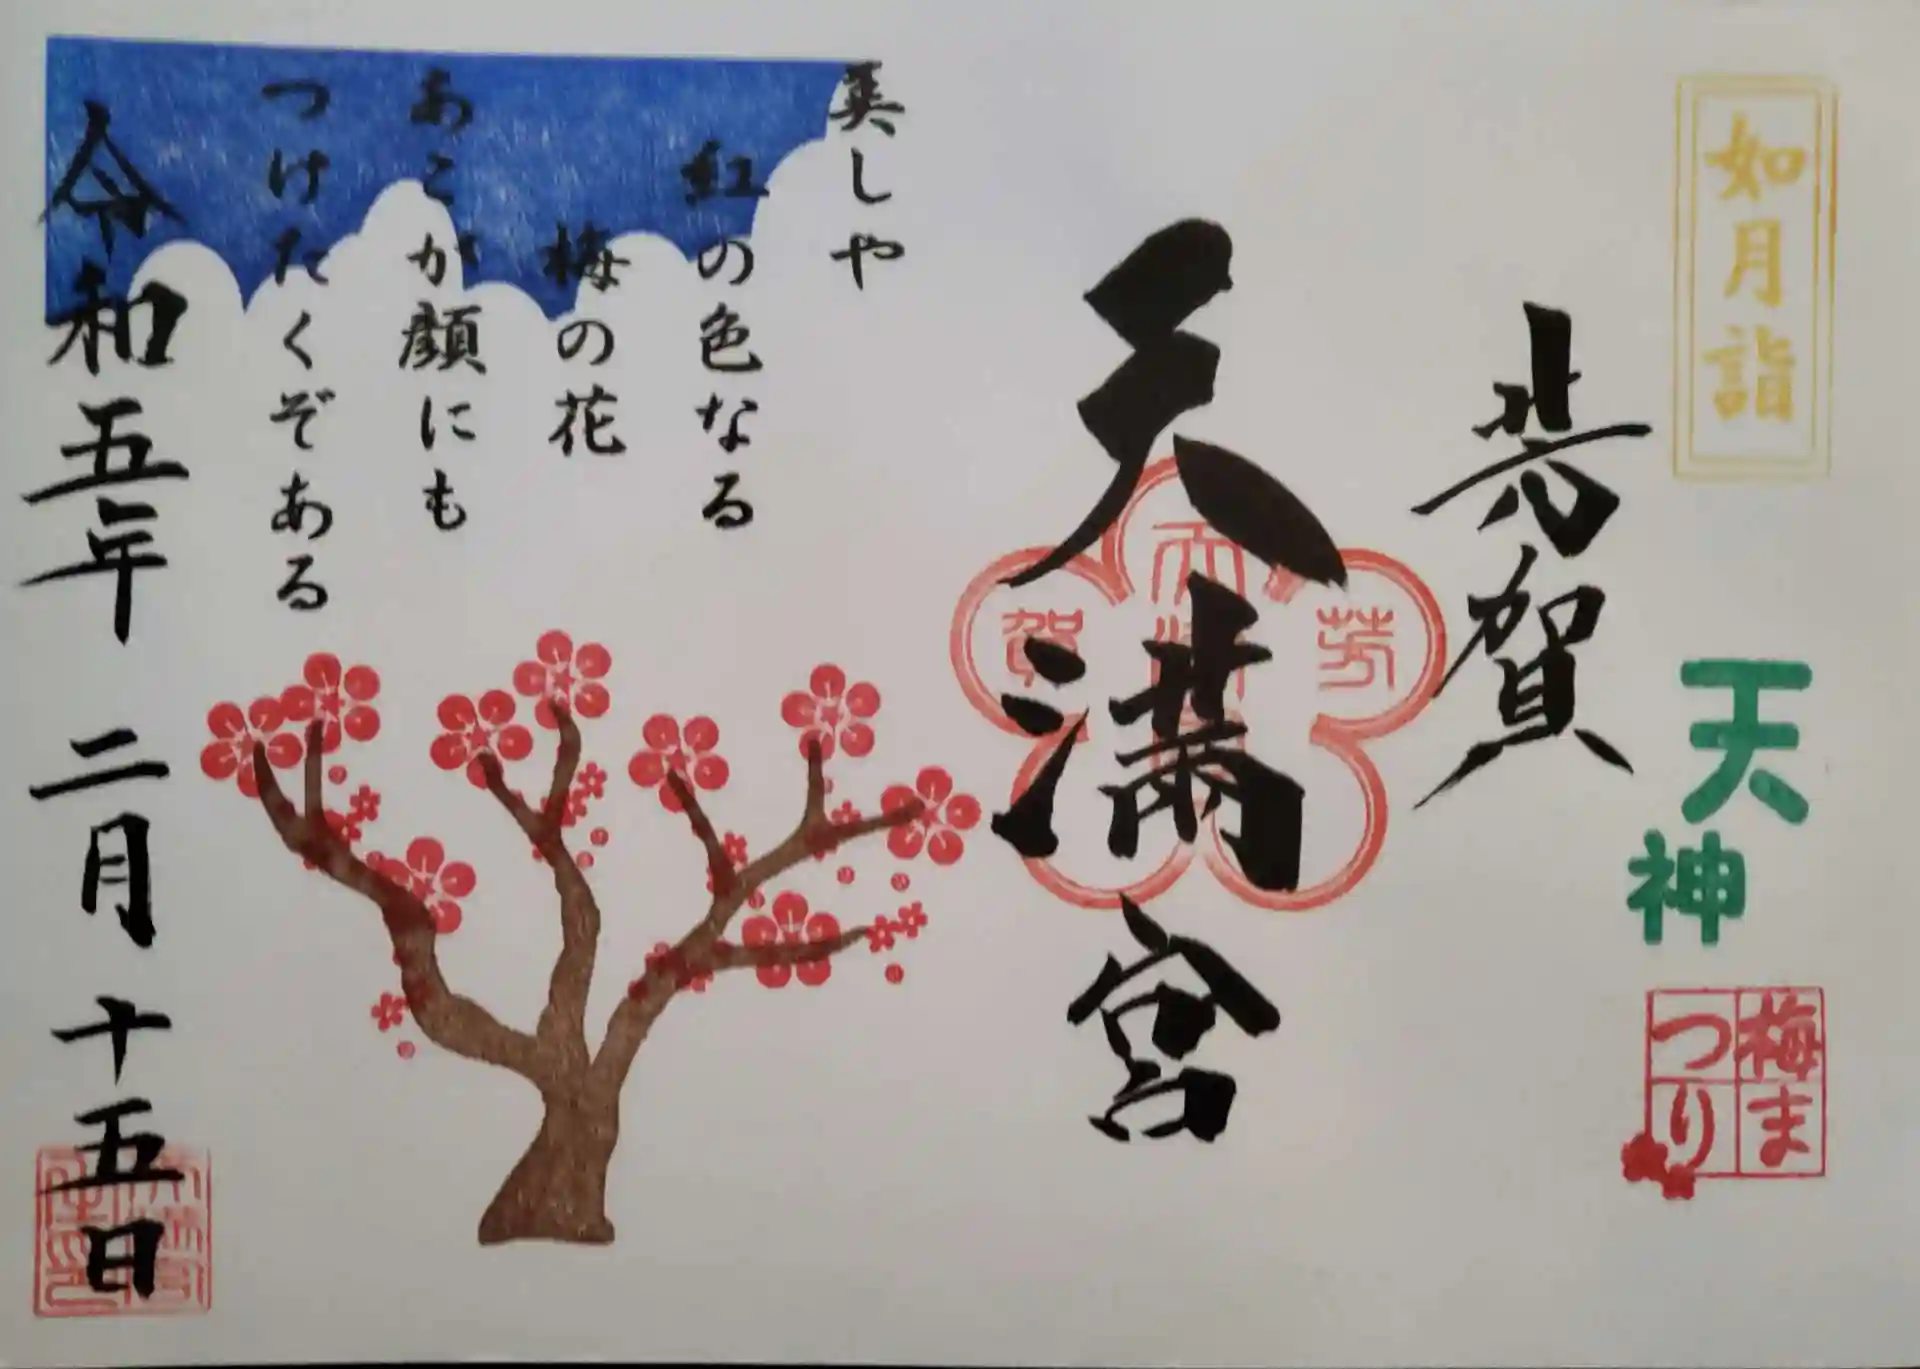 如月詣
天神
梅まつり
芳賀
天満宮
芳賀
天満宮
美しや
紅の色なる
梅の花
あこが顔にも
つけたくぞある
令和五年 二月 十五日